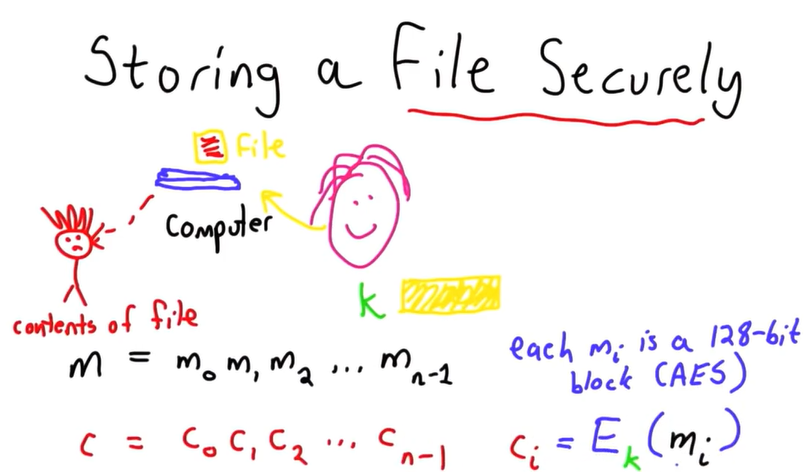 Storing a File Securely
File
Computer
k
contents of file
m = m₀ m₁ m₂ ... mₙ₋₁
each mᵢ is a 128-bit
block (AES)
c = c₀ c₁ c₂ ... cₙ₋₁
cᵢ = Eₖ(mᵢ)